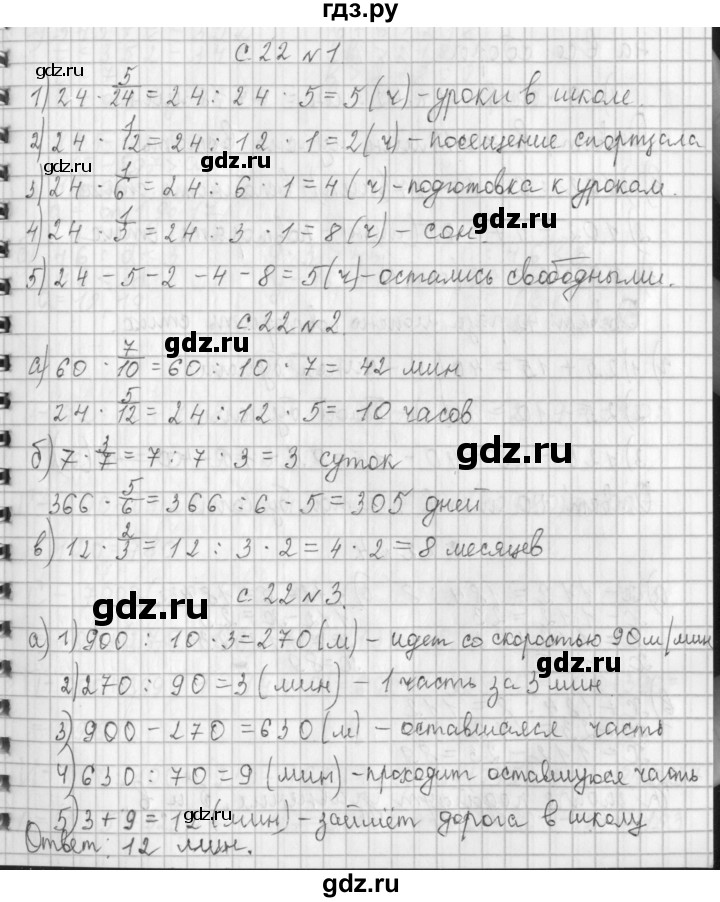 гдз.ру
с. 22 № 1
1) 24 · 5/24 = 24 : 24 · 5 = 5 (ч) - уроки в школе.
2) 24 · 1/12 = 24 : 12 · 1 = 2 (ч) - посещение спортзала
3) 24 · 1/6 = 24 : 6 · 1 = 4 (ч) - подготовка к урокам.
4) 24 · 1/3 = 24 · 3 · 1 = 8 (ч) - сон.
5) 24 - 5 - 2 - 4 - 8 = 5 (ч) - остались свободными.
с. 22 № 2.
а) 60 · 7/10 = 60 : 10 · 7 = 42 мин
24 · 5/12 = 24 : 12 · 5 = 10 часов
б) 7 · 3/7 = 7 : 7 · 3 = 3 суток
366 · 5/6 = 366 : 6 · 5 = 305 дней
в) 12 · 2/3 = 12 : 3 · 2 = 4 · 2 = 8 месяцев
с. 22 № 3.
а) 1) 900 : 10 · 3 = 270 (м) - идет со скоростью 90 м/мин
2) 270 : 90 = 3 (мин) - 1 часть за 3 мин
3) 900 - 270 = 630 (м) - оставшаяся часть
4) 630 : 70 = 9 (мин) - проходит оставшуюся часть
5) 3 + 9 = 12 (мин) - займёт дорога в школу
Ответ: 12 мин.
gdz.ru
gdz.ru
gdz.ru
gdz.ru
gdz.ru
gdz.ru
gdz.ru
gdz.ru
gdz.ru
gdz.ru